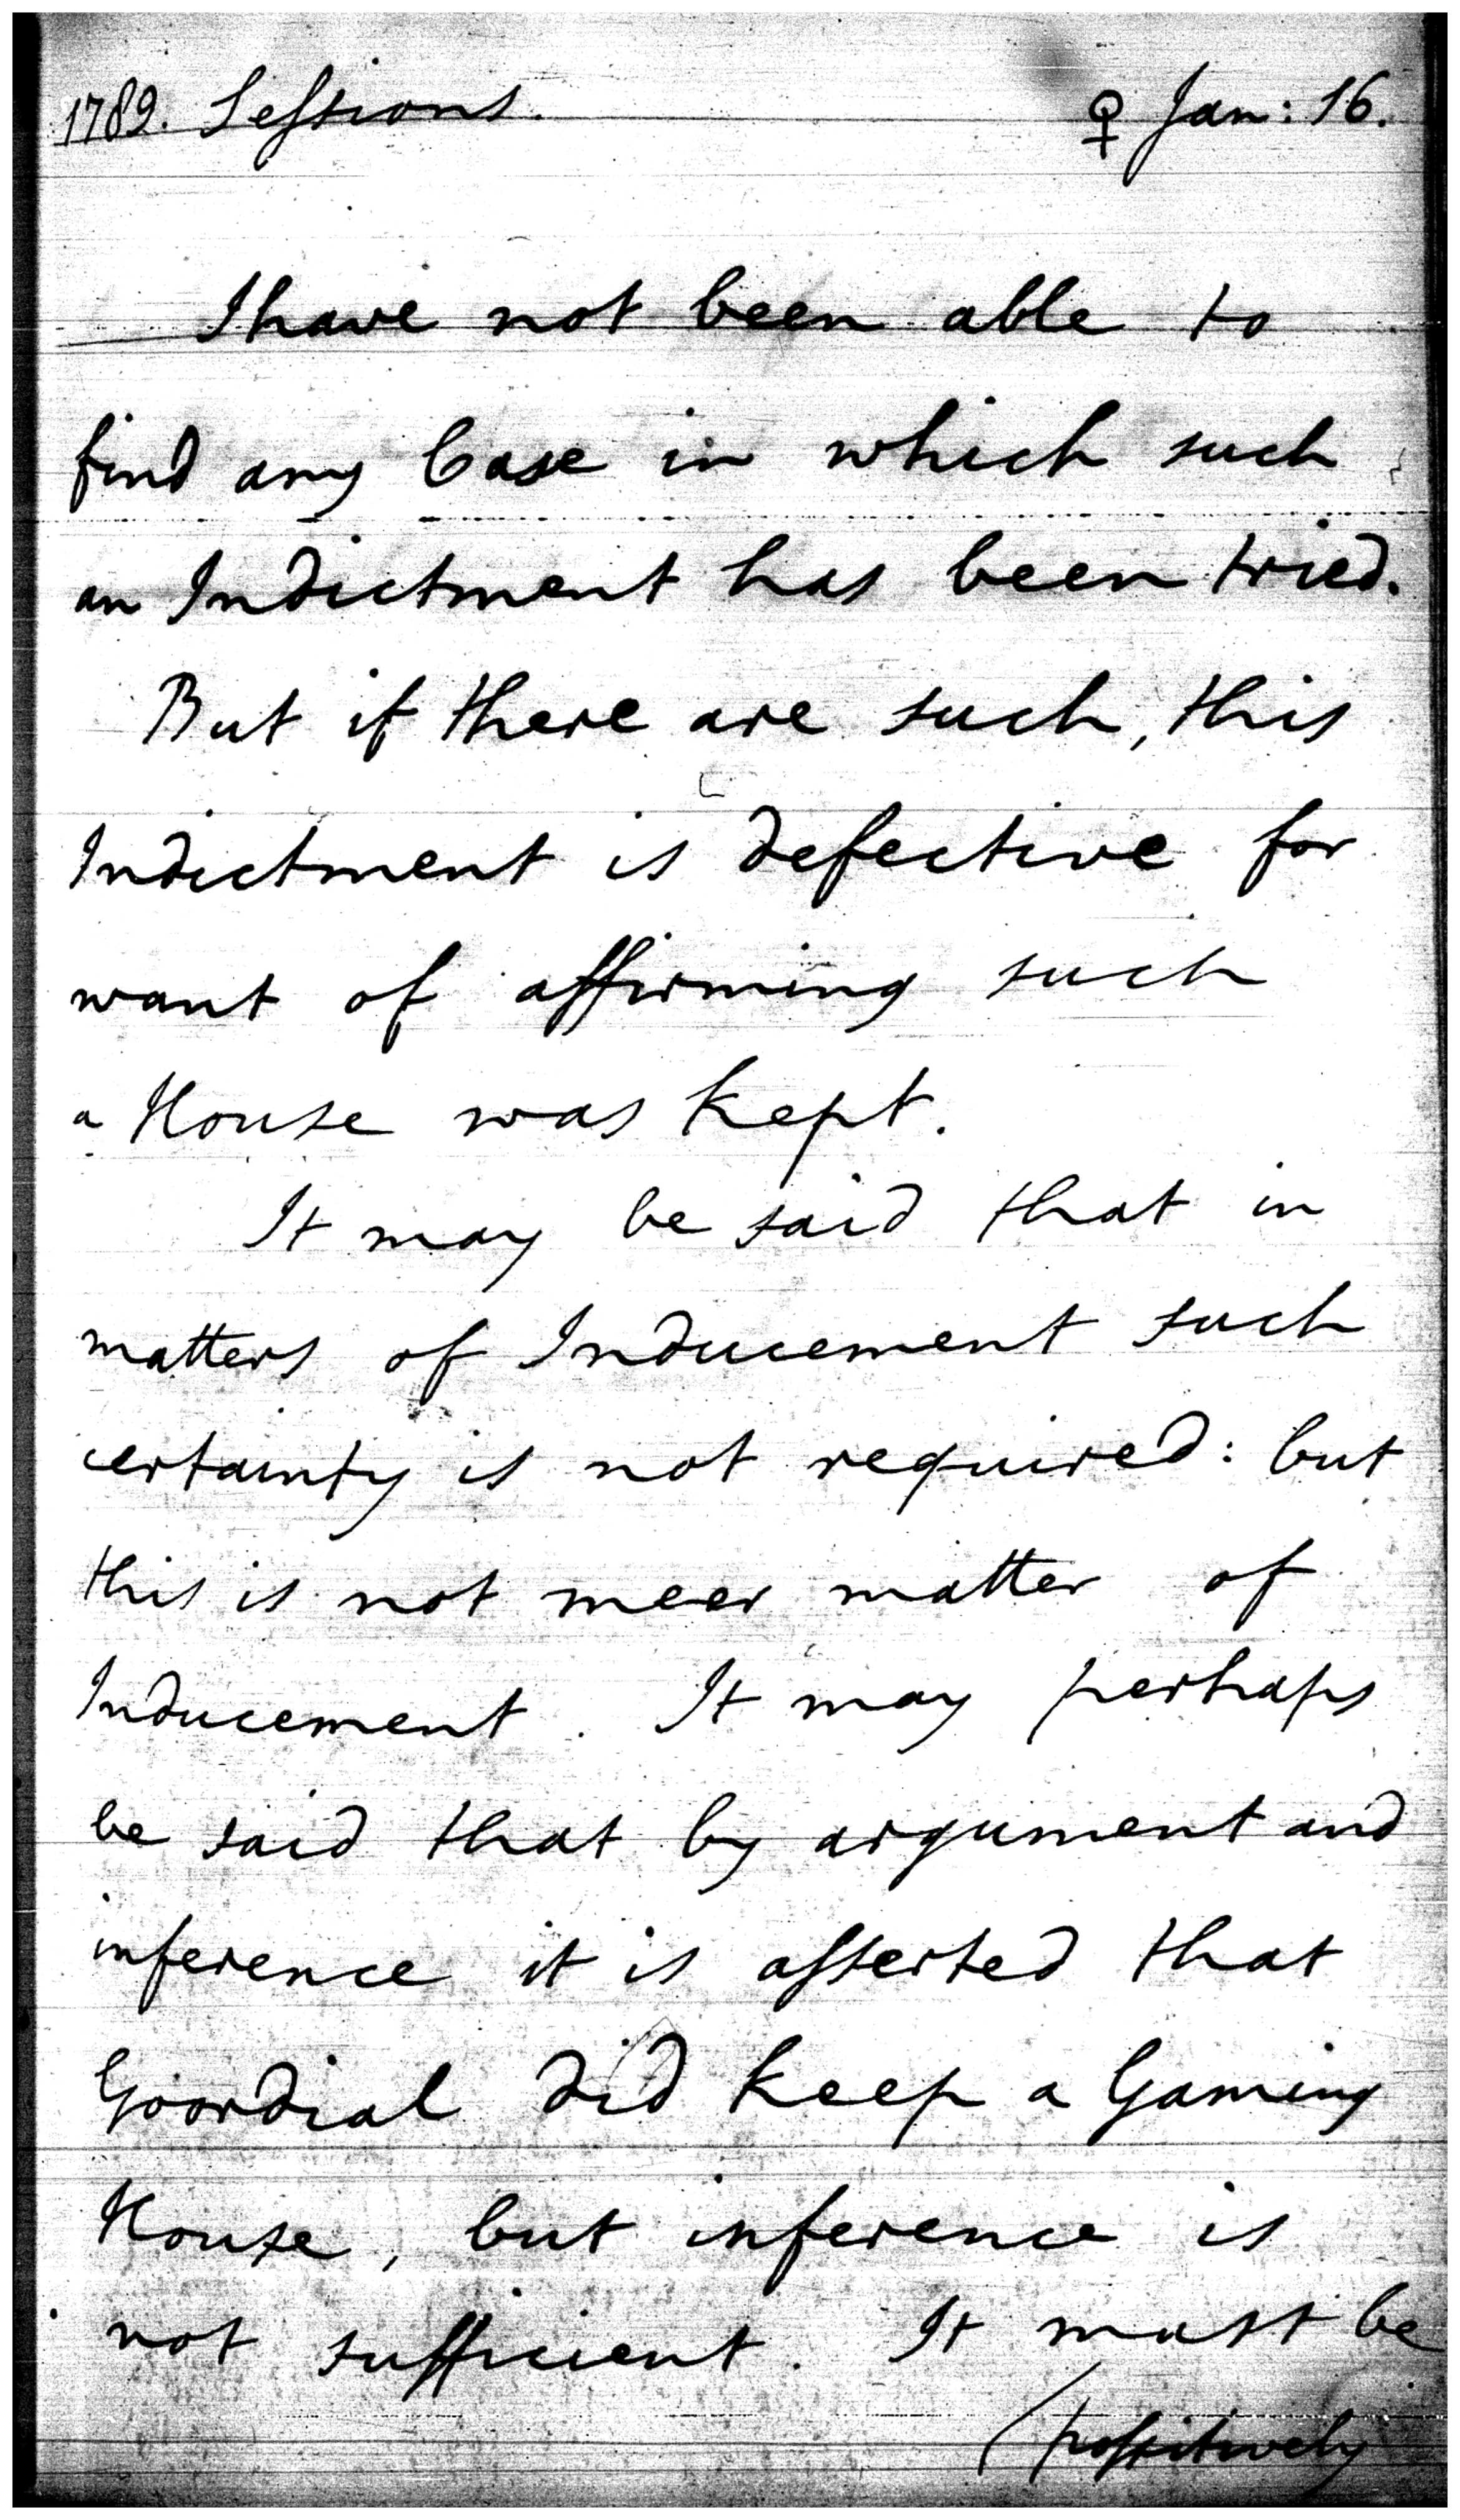 1789. Sessions. ♀ Jan: 16.
I have not been able to
find any Case in which such
an Indictment has been tried.
But if there are such, this
Indictment is defective for
want of affirming such
a House was kept.
It may be said that in
matters of Inducement such
certainty is not required: but
this is not meer matter of
Inducement. It may perhaps
be said that by argument and
inference it is asserted that
Goordial did keep a Gaming
House, but inference is
not sufficient. It must be
(possitively